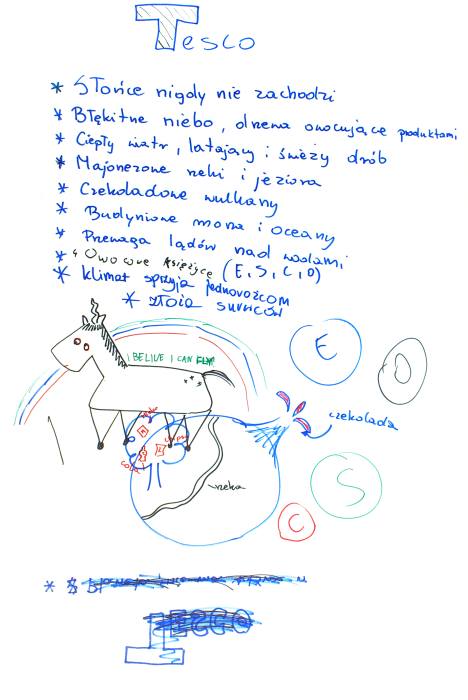 Tesco
* Słońce nigdy nie zachodzi
* Błękitne niebo, drzewa owocujące produktami
* Ciepły wiatr, latający i świeży drób
* Majonezowe rzeki i jeziora
* Czekoladowe wulkany
* Budyniowe morza i oceany
* Przewaga lądów nad wodami
* 4 Owocowe księżyce (E, S, C, O)
* klimat sprzyja jednorożcom
* złoża surowców
I BELIVE I CAN FLY
E
O
czekolada
cola
chipsy
rzeka
S
C
TESCO